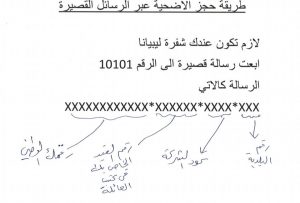 طريقة حجز الاضحية عبر الرسائل القصيرة
لازم تكون عندك شفرة ليبيانا
ابعت رسالة قصيرة الى الرقم 10101
الرسالة كالاتي
XXXXXXXXXXXX*XXXXXX*XXXX*XXX
رقم البلدية
كود الشركة
رقم القيد الخاص بك في كتيب العائلة
رقمك الوطني